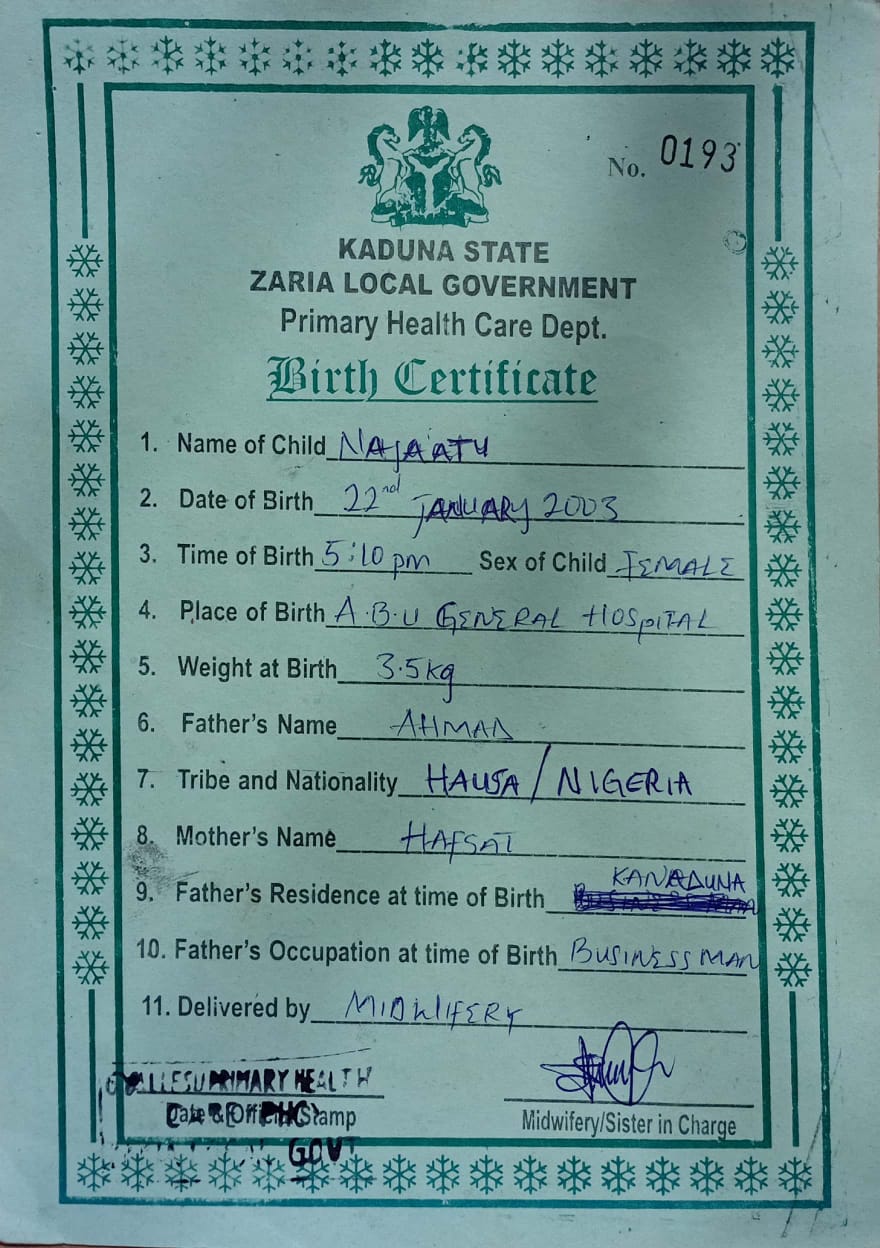 No. 0193
KADUNA STATE
ZARIA LOCAL GOVERNMENT
Primary Health Care Dept.
Birth Certificate
1. Name of Child NAJA'ATU
2. Date of Birth 22nd JANUARY 2003
3. Time of Birth 5:10 pm Sex of Child FEMALE
4. Place of Birth A.B.U GENERAL HOSPITAL
5. Weight at Birth 3.5kg
6. Father's Name AHMAD
7. Tribe and Nationality HAUSA / NIGERIA
8. Mother's Name HAFSAT
KANADUNA
9. Father's Residence at time of Birth
10. Father's Occupation at time of Birth BUSINESSMAN
11. Delivered by MIDWIFERY
GYALLESU PRIMARY HEALTH
Date & Official Stamp
CARE (PHC)
GOVT
Midwifery/Sister in Charge